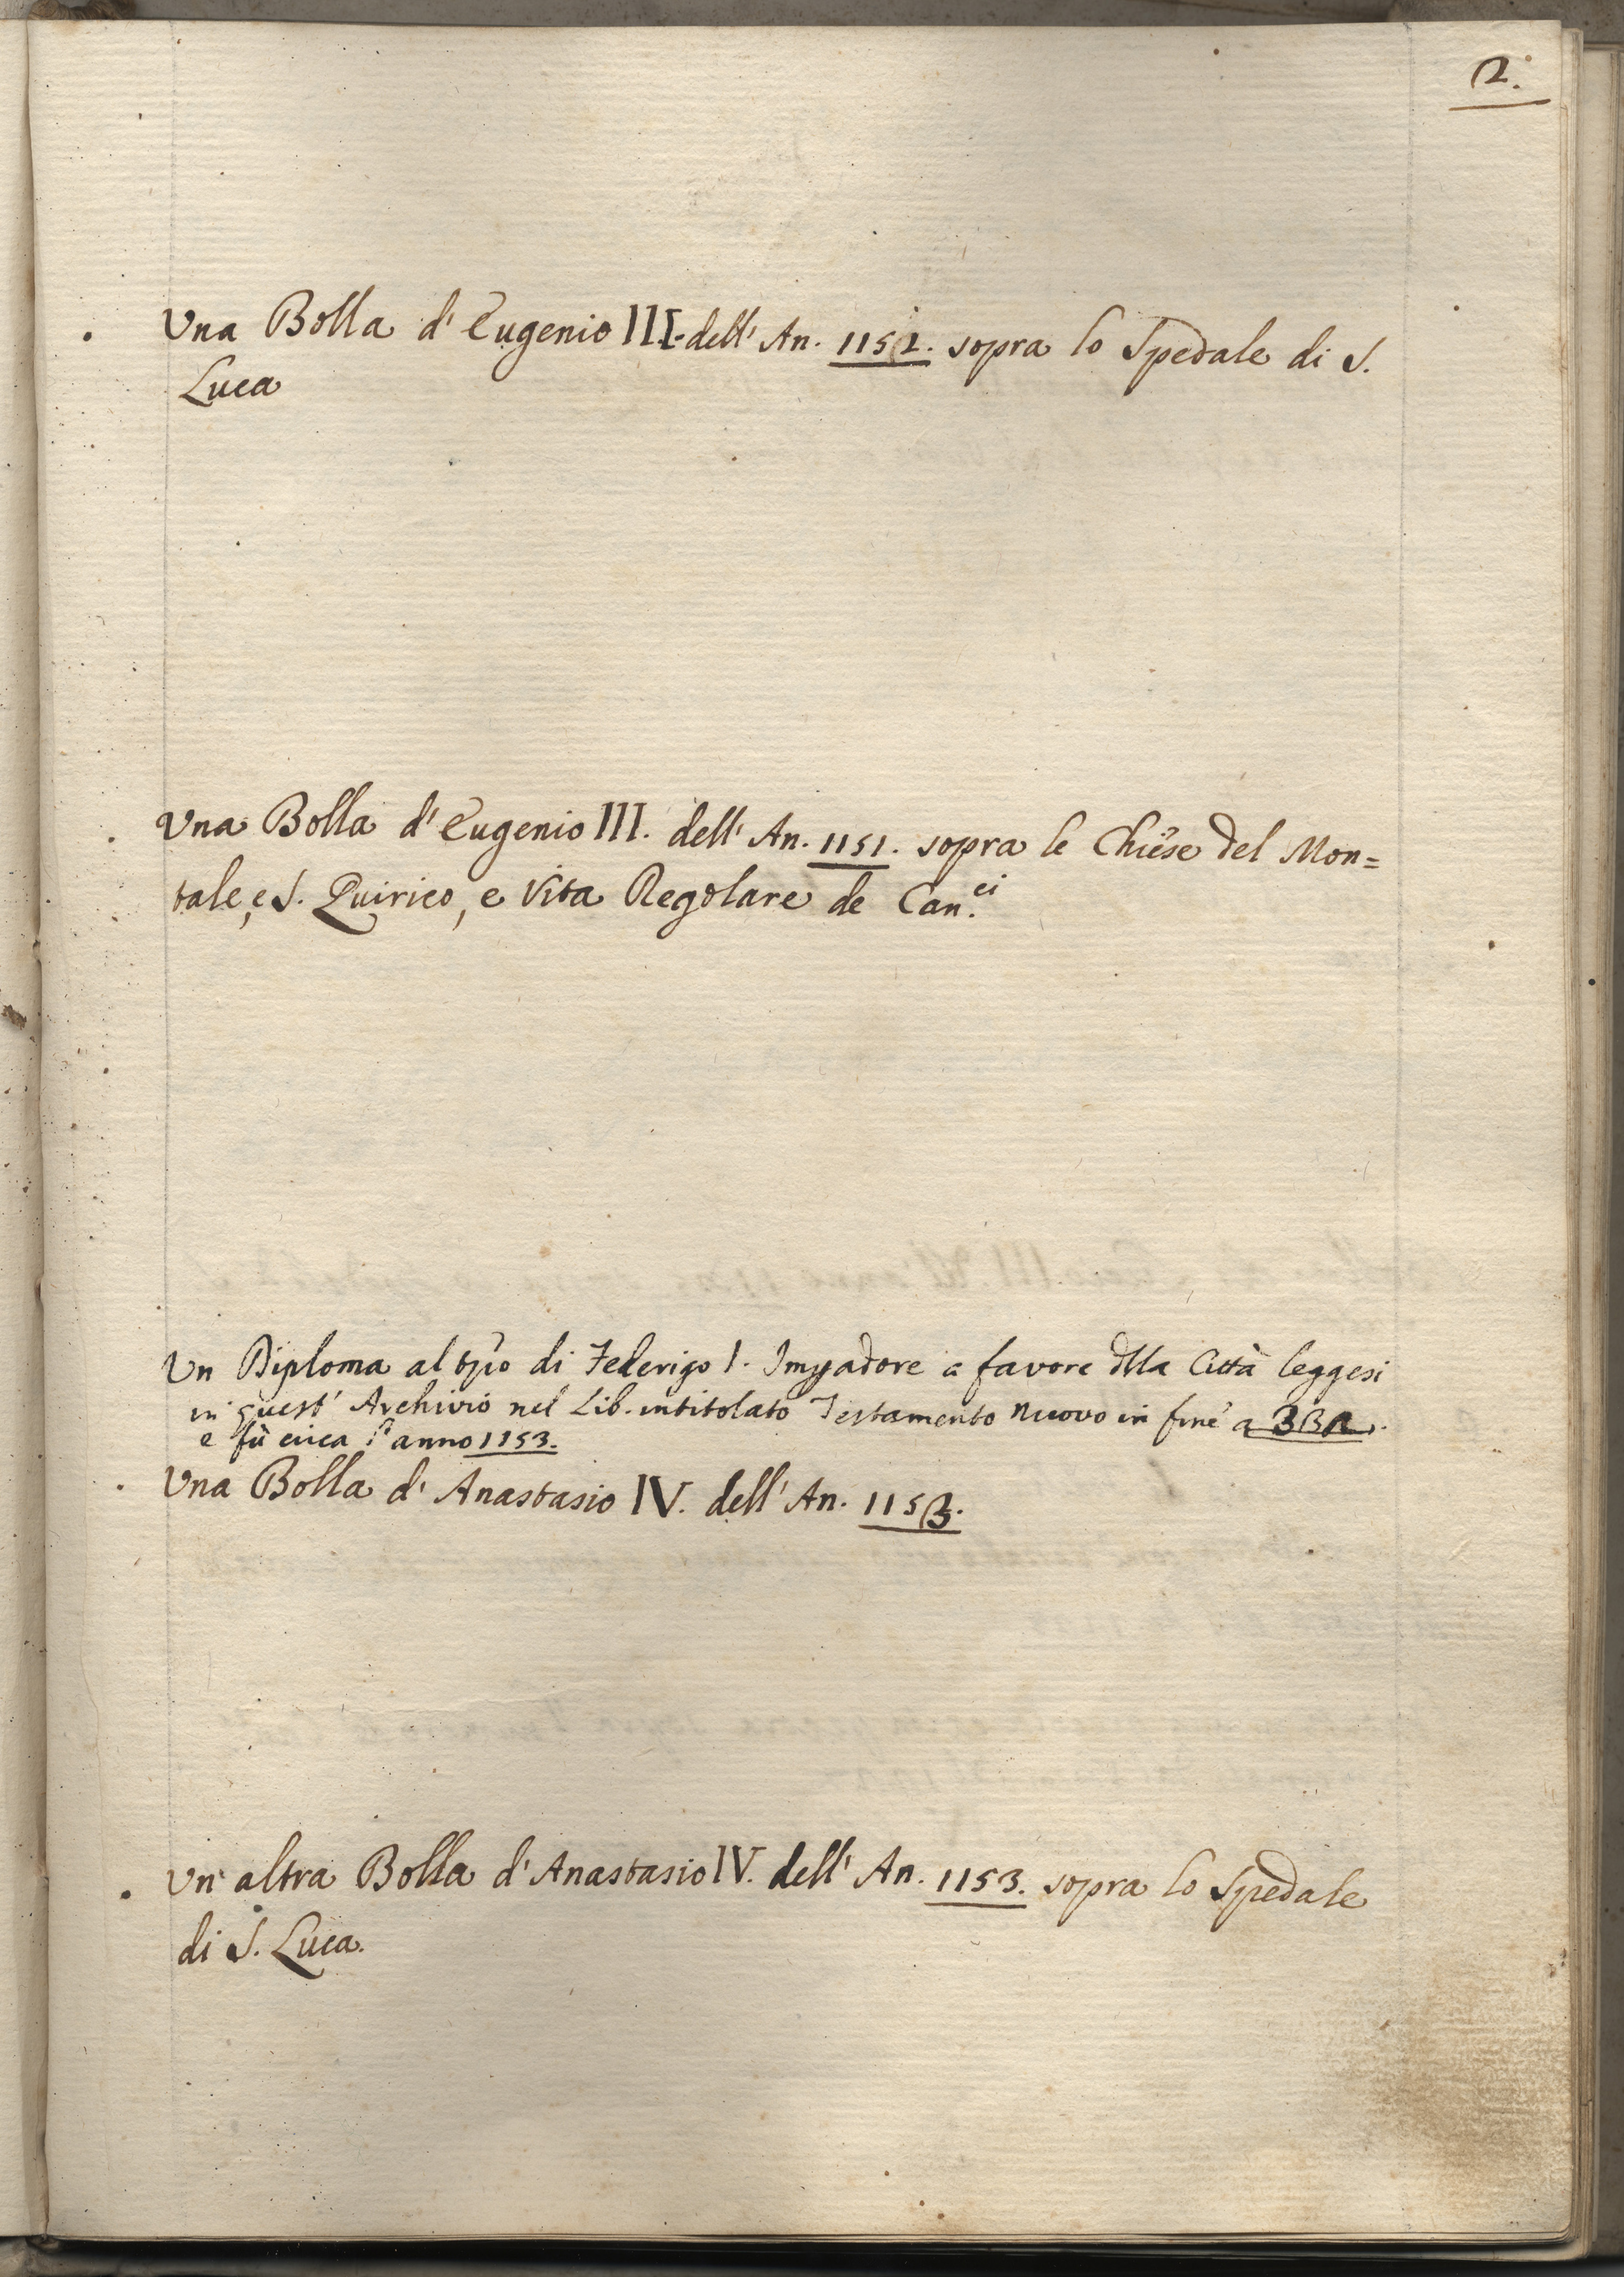 2.
Una Bolla d' Eugenio III. dell' An. 1152. sopra lo Spedale di S.
Luca
Una Bolla d' Eugenio III. dell' An. 1151. sopra le Chiese del Mon=
tale, e S. Quirico, e Vita Regolare de Can.ci
Un Diploma al di Federigo I. a favore dlla Città leggesi
in quest' Archivio nel Lib. intitolato Testamento Nuovo in fine a
e fù circa l' anno 1153.
Una Bolla d' Anastasio IV. dell' An. 1153.
Un altra Bolla d' Anastasio IV. dell' An. 1153. sopra lo Spedale
di S. Luca.